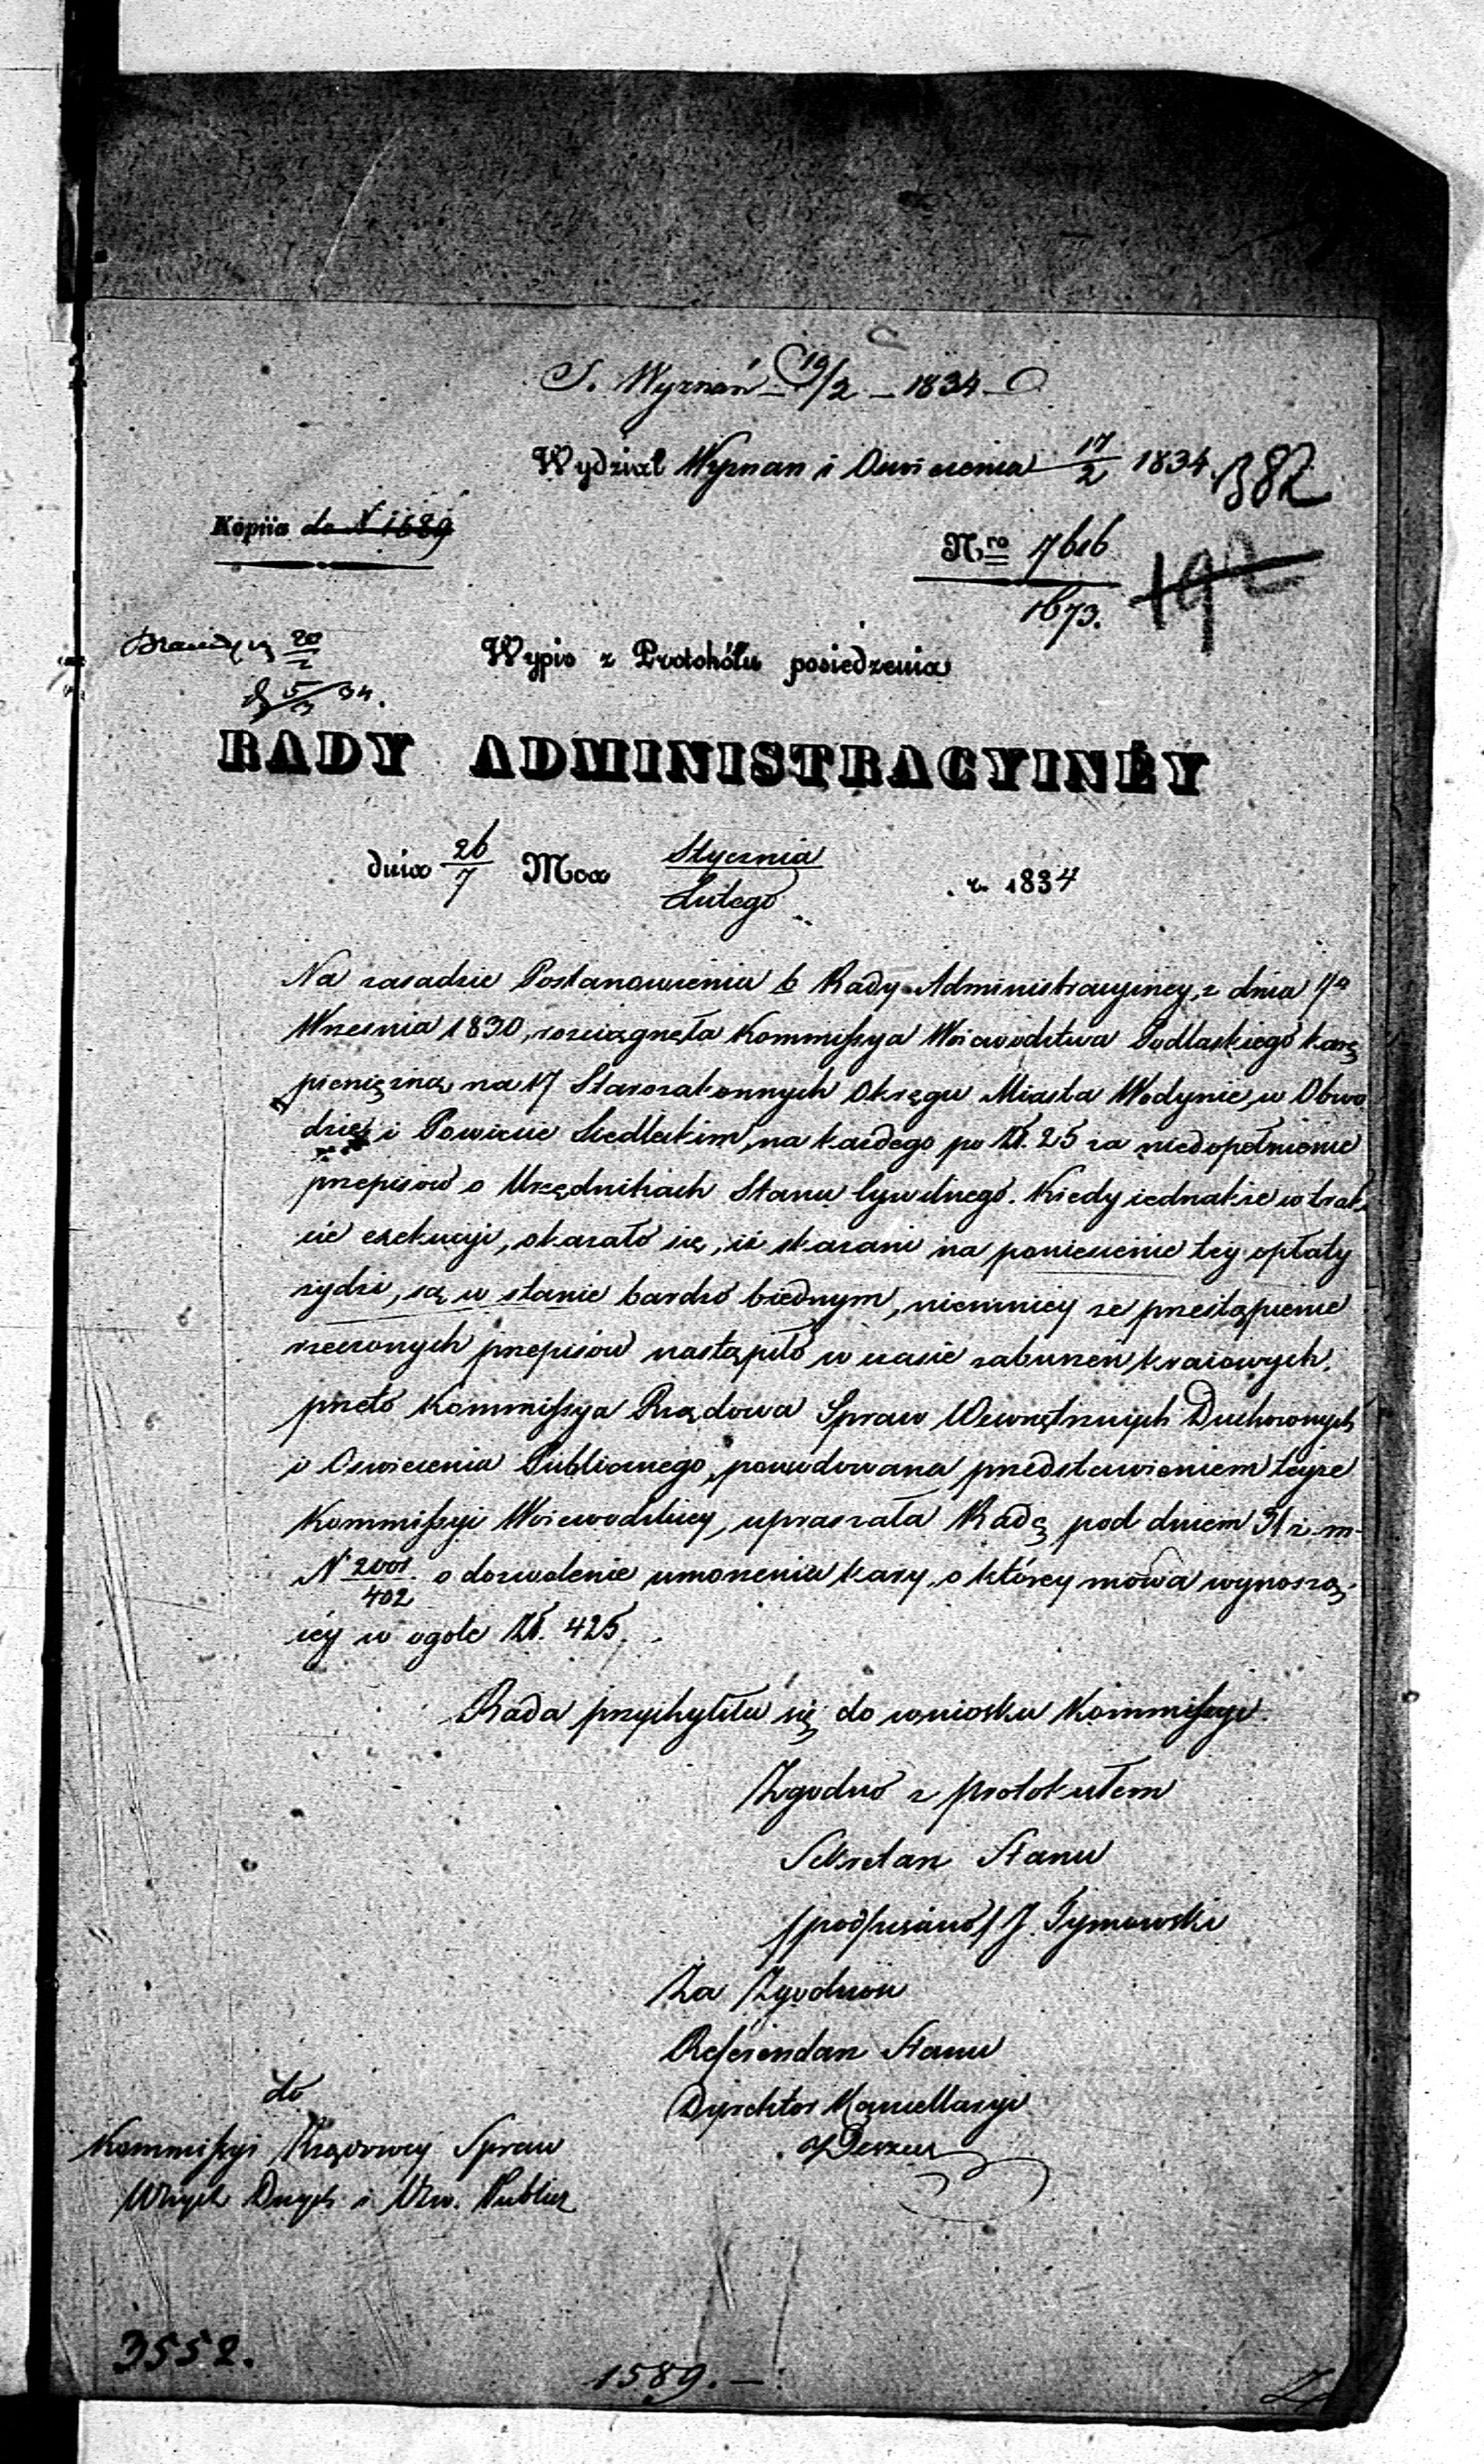 S. Wyznań 19/2 – 1834
Wydział Wyznan i Oswiecenia 17/2 1834.
382
Kopiia do N 1689
Nro 7616
1673.
20
5/3 34.
Wypis z Protokółu posiedzenia
RADY ADMINISTRACYINÉY
dnia 26/7 Mca Stycznia/Lutego r. 1834
Na zasadzie Postanowienia b Rady Administracyiney, z dnia 7go
Wrzesnia 1830, rosciągnęła Kommissya Woiewodztwa Podlaskiego karę
pieniężną na 17 Starozakonnych Okręgu Miasta Wodynie, w Obwo
dzie i Powiecie Siedleckim, na każdego po Zł. 25 za niedopełnienie
przepisów o Urzędnikach Stanu Cywilnego. Kiedy iednakże w trak
cie exekucyi, okazało się, iż skazani na poniesienie tey opłaty
żydzi, są w stanie bardzo biednym, niemniey że przestąpienie
rzeczonych przepisów nastąpiło w czasie zaburzeń kraiowych,
przeto Kommissya Rządowa Spraw Wewnętrznych Duchownych
i Oswiecenia Publicznego, powodowana przedstawieniem teyże
Kommissyi Woiewodzkiey, upraszała Radę pod dniem 31 z. m.
N 2001/402 o dozwolenie umorzenia kary, o którey mowa wynoszą-
cey w ogole Zł. 425.
Rada przychyliła się do wniosku Kommissyi.
Zgodno z protokułem
Sekretarz Stanu
/podpisano/ J. Tymowski
Za Zgodność
Referendarz Stanu
Dyrektor Kancellaryi
do
Kommissyi Rządowey Spraw
Wnych Dnych i Ośw. Publicz
3552.
1589. –